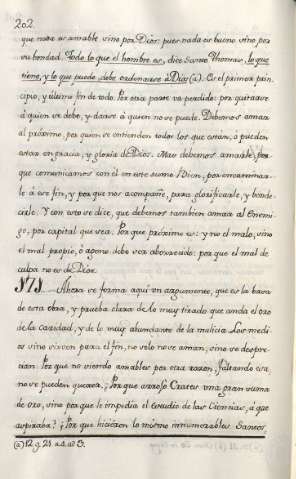 202.
que nada es amable sino por Dios: pues nada es bueno sino por
su bondad. Todo lo que el hombre es, dice Santo Thomas, lo que
tiene, y lo que puede debe ordenarse à Dios (a). Es el primer prin-
cipio, y ultimo fin de todo. Por otra parte va perdido: por quitarse
à quien se debe, y darse à quien no se puede. Debemos amar
al próximo, por quien se entienden todos los que estan, ò pueden
estar en gracia, y gloria de Dios. Mas debemos amarle, por
que comunicamos con el en este sumo Bien, por encaminar-
le à ese fin, y por que nos acompañe, para glorificarle, y bende-
cirle. Y con esto se dice, que debemos tambien amar al Enemi-
go, por capital que sea. Por que próximo es: y no el malo, sino
el mal propio, ò ageno debe ser aborrecido: por que el mal de
culpa no es de Dios.
Ahora se forma aqui un argumento, que es la basa
de esta obra, y prueba clara de lo muy tirado que anda el oro
de la caridad, y de lo muy abundante de la malicia. Los medi-
os sino sirven para el fin, no solo no se aman, sino se despre-
cian. Por que no siendo amables por otra razon, faltando esa,
no se pueden querer. ¿Por que arrojo Crates una gran suma
de oro, sino por que le impedia el estudio de las Ciencias, à que
aspiraba? ¿Por que hicieron lo mismo innumerables Santos